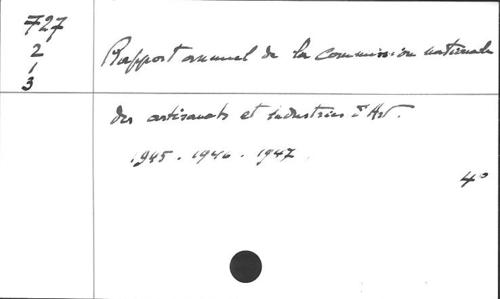 727
2
1
3
Rapport annuel de la Commission nationale
des artisanats et industries d'Art.
1945. 1946. 1947.
4°